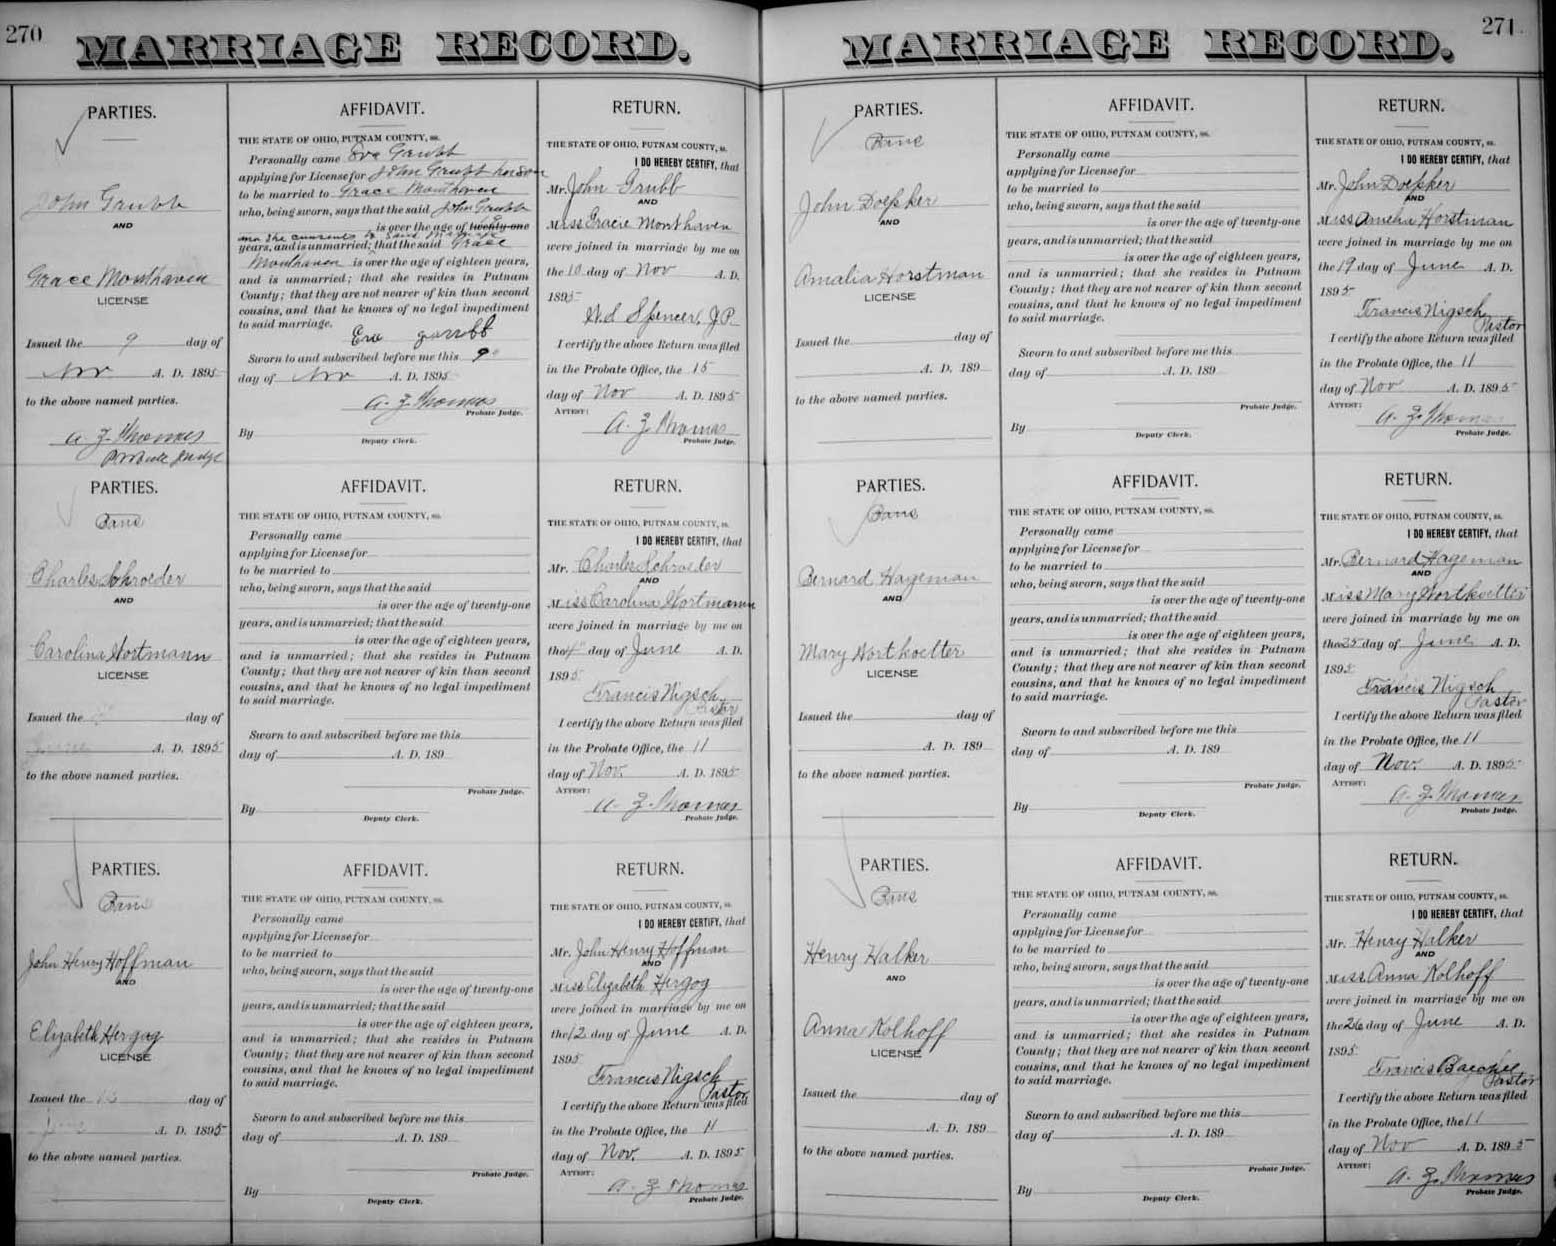 270
MARRIAGE RECORD.
PARTIES.
John Grubb
AND
Grace Monthaven
LICENSE
Issued the 9 day of
Nov A. D. 1895
to the above named parties.
A. Z. Thomas
Probate Judge
AFFIDAVIT.
THE STATE OF OHIO, PUTNAM COUNTY, ss.
Personally came Eva Grubb
applying for License for John Grubb her son
to be married to Grace Monthaven
who, being sworn, says that the said John Grubb
is over the age of twenty-one
and she consents to said marriage
years, and is unmarried; that the said Grace
Monthaven is over the age of eighteen years,
and is unmarried; that she resides in Putnam
County; that they are not nearer of kin than second
cousins, and that he knows of no legal impediment
to said marriage.
Eva
Sworn to and subscribed before me this 9
day of Nov A. D. 1895
A. Z. Thomas
Probate Judge.
By
Deputy Clerk.
RETURN.
THE STATE OF OHIO, PUTNAM COUNTY, ss.
I DO HEREBY CERTIFY, that
Mr. John Grubb
AND
Miss Gracie Monthaven
were joined in marriage by me on
the 10 day of Nov A. D.
1895
Spencer, J.P.
I certify the above Return was filed
in the Probate Office, the 15
day of Nov A. D. 1895
ATTEST:
A. Z. Thomas
Probate Judge.
PARTIES.
Bans
Charles Schroeder
AND
Carolina Nortmann
LICENSE
Issued the day of
June A. D. 1895
to the above named parties.
AFFIDAVIT.
THE STATE OF OHIO, PUTNAM COUNTY, ss.
Personally came
applying for License for
to be married to
who, being sworn, says that the said
is over the age of twenty-one
years, and is unmarried; that the said
is over the age of eighteen years,
and is unmarried; that she resides in Putnam
County; that they are not nearer of kin than second
cousins, and that he knows of no legal impediment
to said marriage.
Sworn to and subscribed before me this
day of A. D. 189
Probate Judge.
By
Deputy Clerk.
RETURN.
THE STATE OF OHIO, PUTNAM COUNTY, ss.
I DO HEREBY CERTIFY, that
Mr. Charles Schroeder
AND
Miss Carolina Nortmann
were joined in marriage by me on
the 4 day of June A. D.
1895
Francis Nigsch
Pastor
I certify the above Return was filed
in the Probate Office, the 11
day of Nov. A. D. 1895
ATTEST:
A. Z. Thomas
Probate Judge.
PARTIES.
Bans
John Henry Hoffman
AND
Elizabeth Hergog
LICENSE
Issued the day of
June A. D. 1895
to the above named parties.
AFFIDAVIT.
THE STATE OF OHIO, PUTNAM COUNTY, ss.
Personally came
applying for License for
to be married to
who, being sworn, says that the said
is over the age of twenty-one
years, and is unmarried; that the said
is over the age of eighteen years,
and is unmarried; that she resides in Putnam
County; that they are not nearer of kin than second
cousins, and that he knows of no legal impediment
to said marriage.
Sworn to and subscribed before me this
day of A. D. 189
Probate Judge.
By
Deputy Clerk.
RETURN.
THE STATE OF OHIO, PUTNAM COUNTY, ss.
I DO HEREBY CERTIFY, that
Mr. John Henry Hoffman
AND
Miss Elizabeth Hergog
were joined in marriage by me on
the 12 day of June A. D.
1895
Francis Nigsch
Pastor
I certify the above Return was filed
in the Probate Office, the 11
day of Nov. A. D. 1895
ATTEST:
A. Z. Thomas
Probate Judge.
271
MARRIAGE RECORD.
PARTIES.
Bans
John Doepker
AND
Amalia Horstman
LICENSE
Issued the day of
A. D. 189
to the above named parties.
AFFIDAVIT.
THE STATE OF OHIO, PUTNAM COUNTY, ss.
Personally came
applying for License for
to be married to
who, being sworn, says that the said
is over the age of twenty-one
years, and is unmarried; that the said
is over the age of eighteen years,
and is unmarried; that she resides in Putnam
County; that they are not nearer of kin than second
cousins, and that he knows of no legal impediment
to said marriage.
Sworn to and subscribed before me this
day of A. D. 189
Probate Judge.
By
Deputy Clerk.
RETURN.
THE STATE OF OHIO, PUTNAM COUNTY, ss.
I DO HEREBY CERTIFY, that
Mr. John Doepker
AND
Miss Amelia Horstman
were joined in marriage by me on
the 19 day of June A. D.
1895
Francis Nigsch
Pastor
I certify the above Return was filed
in the Probate Office, the 11
day of Nov A. D. 1895
ATTEST:
A. Z. Thomas
Probate Judge.
PARTIES.
Bans
Bernard Hageman
AND
Mary Nortkoetter
LICENSE
Issued the day of
A. D. 189
to the above named parties.
AFFIDAVIT.
THE STATE OF OHIO, PUTNAM COUNTY, ss.
Personally came
applying for License for
to be married to
who, being sworn, says that the said
is over the age of twenty-one
years, and is unmarried; that the said
is over the age of eighteen years,
and is unmarried; that she resides in Putnam
County; that they are not nearer of kin than second
cousins, and that he knows of no legal impediment
to said marriage.
Sworn to and subscribed before me this
day of A. D. 189
Probate Judge.
By
Deputy Clerk.
RETURN.
THE STATE OF OHIO, PUTNAM COUNTY, ss.
I DO HEREBY CERTIFY, that
Mr. Bernard Hageman
AND
Miss Mary Nortkoetter
were joined in marriage by me on
the 25 day of June A. D.
1895
Francis Nigsch
Pastor
I certify the above Return was filed
in the Probate Office, the 11
day of Nov. A. D. 1895
ATTEST:
A. Z. Thomas
Probate Judge.
PARTIES.
Bans
Henry Walker
AND
Anna Kolhoff
LICENSE
Issued the day of
A. D. 189
to the above named parties.
AFFIDAVIT.
THE STATE OF OHIO, PUTNAM COUNTY, ss.
Personally came
applying for License for
to be married to
who, being sworn, says that the said
is over the age of twenty-one
years, and is unmarried; that the said
is over the age of eighteen years,
and is unmarried; that she resides in Putnam
County; that they are not nearer of kin than second
cousins, and that he knows of no legal impediment
to said marriage.
Sworn to and subscribed before me this
day of A. D. 189
Probate Judge.
By
Deputy Clerk.
RETURN.
THE STATE OF OHIO, PUTNAM COUNTY, ss.
I DO HEREBY CERTIFY, that
Mr. Henry Walker
AND
Miss Anna Kolhoff
were joined in marriage by me on
the 26 day of June A. D.
1895
Francis
Pastor
I certify the above Return was filed
in the Probate Office, the 11
day of Nov A. D. 1895
ATTEST:
A. Z. Thomas
Probate Judge.